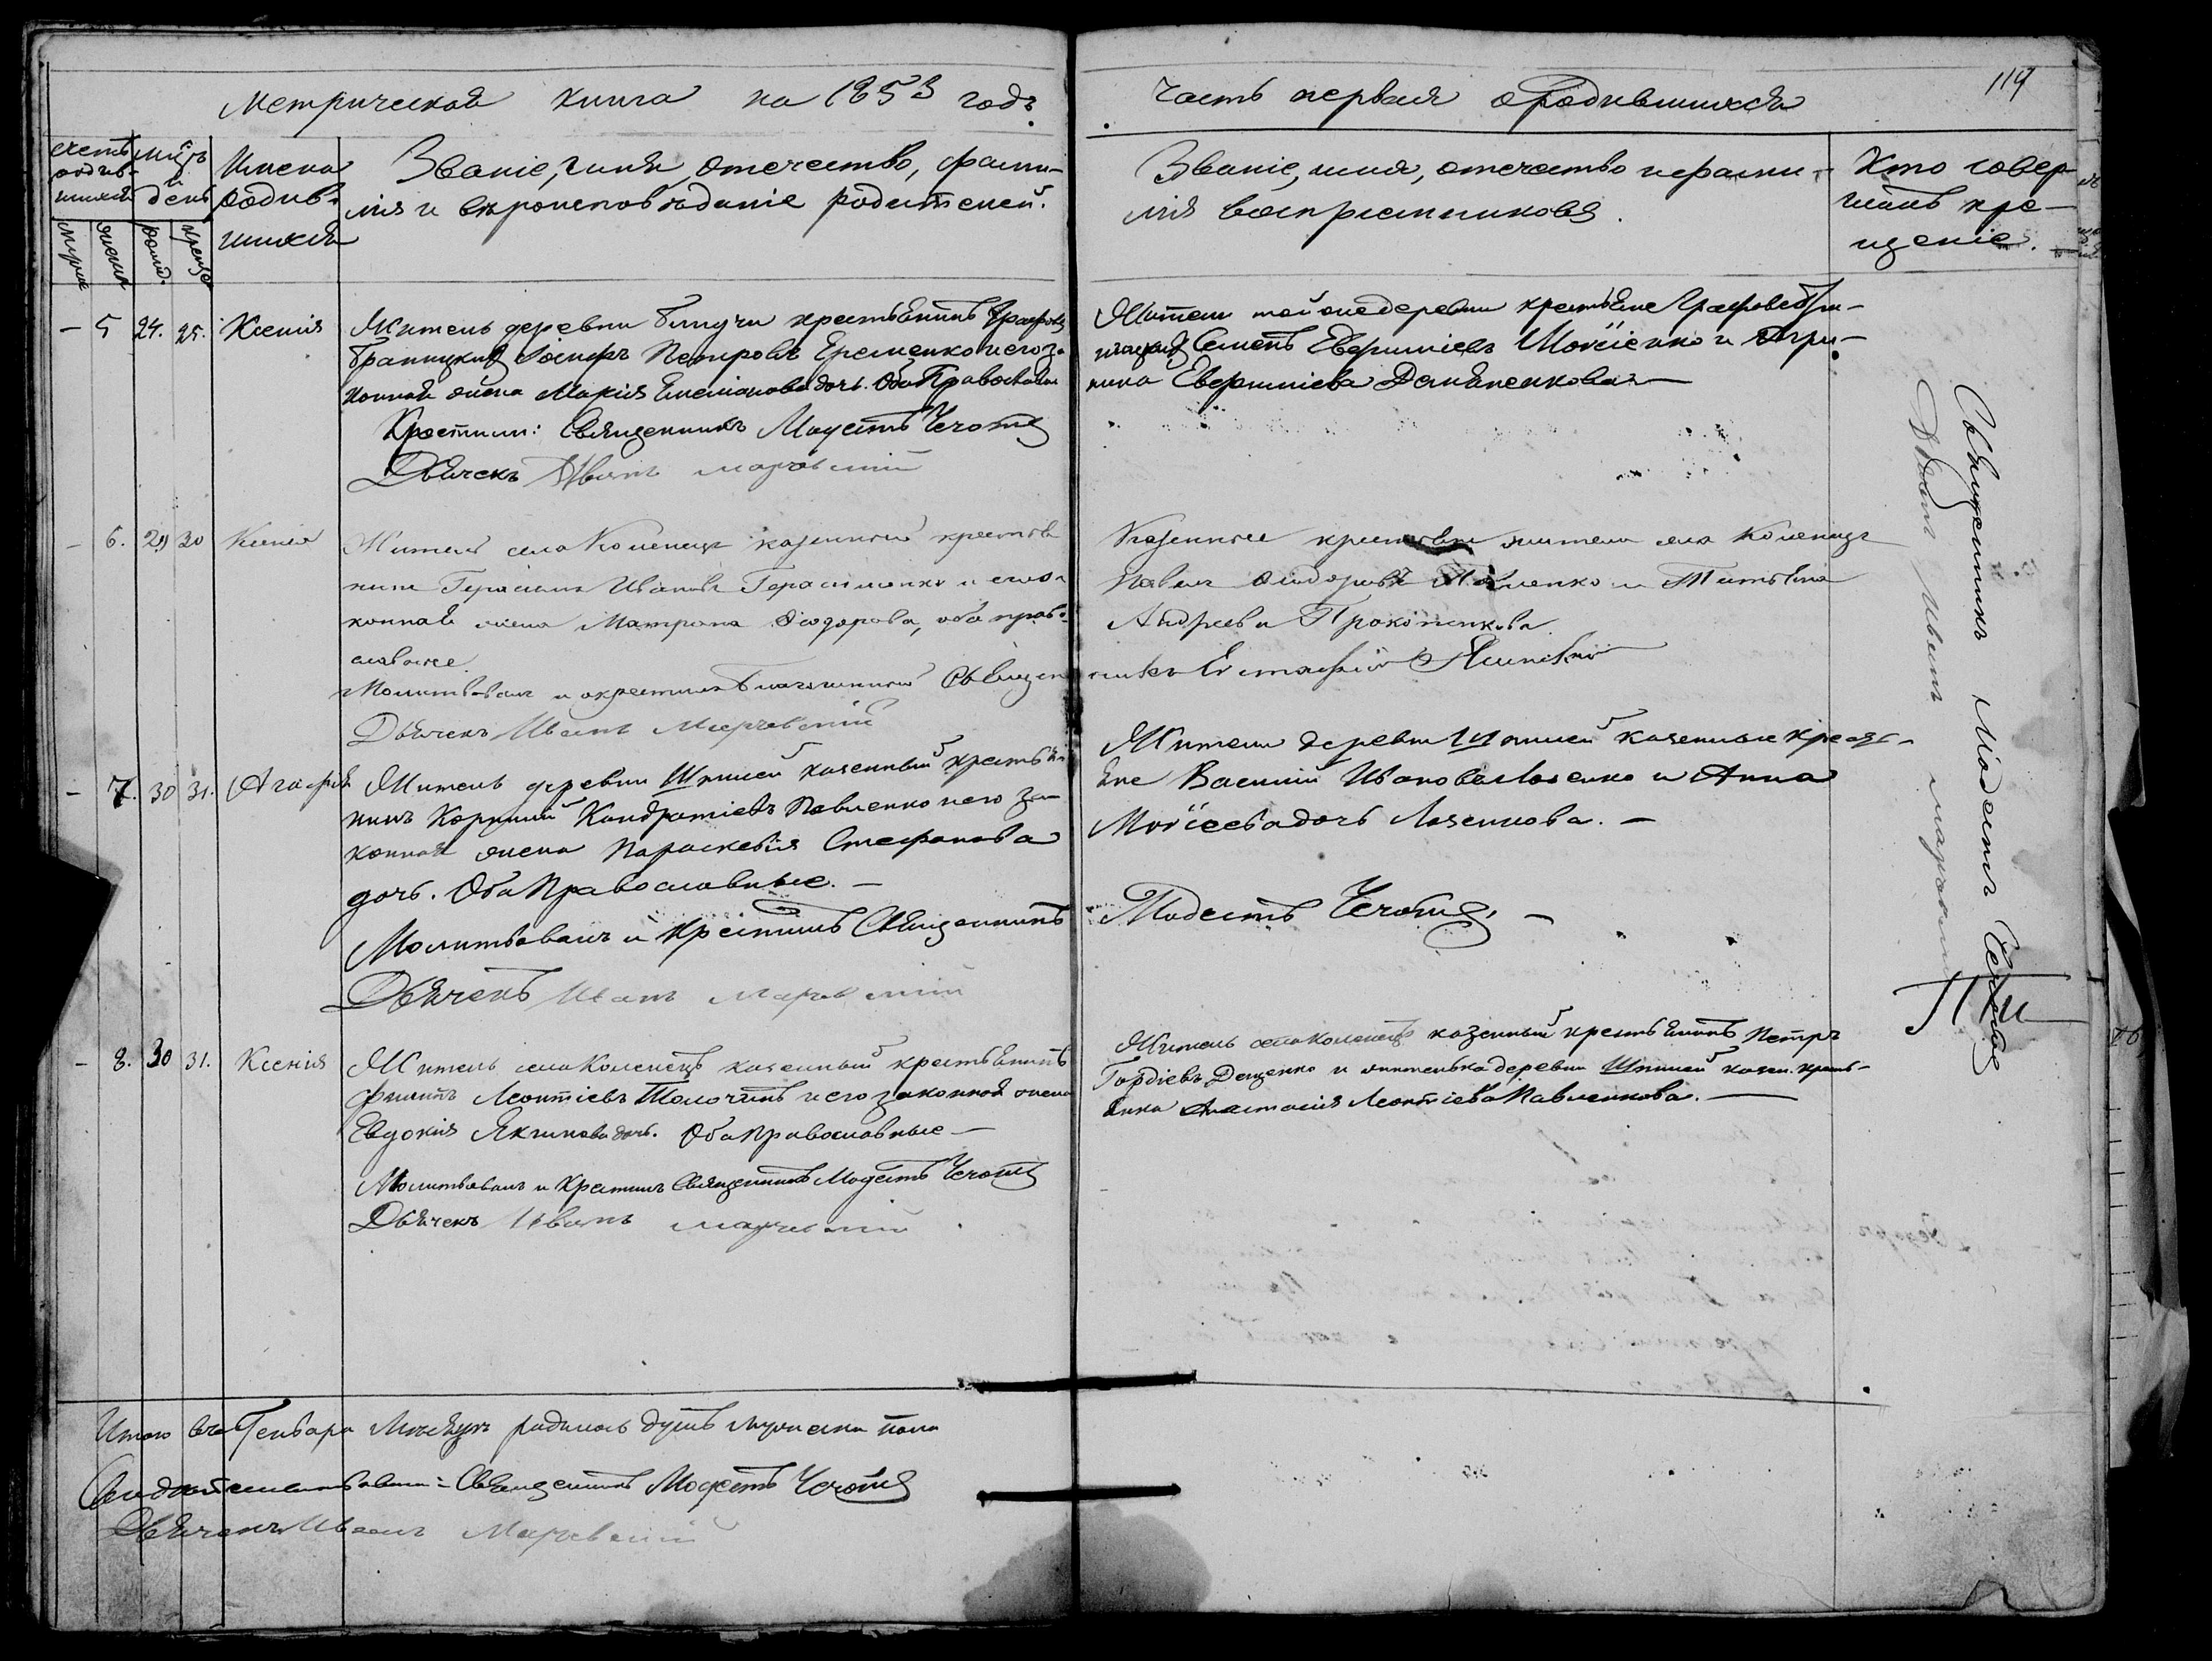 Метрическая книга на 1853 годъ.
Часть первая о родившихся
114
Счетъ родив-шихся
Мѣсяцъ и день
Имена родив-шихся
Званіе, имя, отечество, фами-
лія и вѣроисповѣданіе родителей.
Званіе, имя, отечество и фами-
лія воспріемниковъ.
Кто совер-
шалъ кре-
щеніе.
мужск
женск
рожд.
крещ.
– 5 24. 25. Ксенія
Житель деревни крестьянинъ Графовъ
Браницкихъ Іосифъ Петровъ Еременко и его за-
конная жена Марія Емеліанова дочь. Оба Православные
Крестили: Священникъ Модестъ Чеготъ
Дьячекъ Иванъ
Жители той же деревни крестьяне Графовъ Бра-
ницкихъ Семенъ Евфиміевъ Моисіенко и
Евфиміева Демяненкова. —
– 6. 29 30 Ксенія
Житель села Коленецъ казенный крестья
нинъ Герасимъ Ивановъ Герасименко и его за
конная жена Матрона Ѳеодорова, оба право-
славные.
Молитвовалъ и окрестилъ Благочинный Священ
никъ Евстафій
Дьячекъ Иванъ
Казенные крестьяне жители села Коленецъ
Павелъ Ѳеодоровъ и Татьяна
Андреева Прокопенкова.
– 7. 30 31. Агафія
Житель деревни Шпилей казенный крестья
нинъ Корнилій Кондратіевъ Павленко и его за
конная жена Параскевія Стефанова
дочь. Оба Православные. —
Молитвовалъ и Крестилъ Священникъ
Модестъ Чеготъ, —
Дьячекъ Иванъ
Жители деревни Шпилей казенные кресть-
яне Василій Ивановъ Лазенко и Анна
Моисеева дочь Лазенкова. —
– 8. 30 31. Ксенія
Житель села Коленецъ казенный крестьянинъ
Филипъ Леонтіевъ Толочинъ и его законная жена
Евдокія Якимова дочь. Оба православные —
Молитвовалъ и Крестилъ Священникъ Модестъ Чеготъ
Дьячекъ Иванъ
Житель села Коленецъ казенный крестьянинъ Петръ
Гордіевъ Деценко и жителька деревни Шпилей казен. кресть-
янка Анастасія Леонтіева Павленкова. —
Священникъ Модестъ Чеготъ
Дьячекъ Иванъ
Итого въ Генваря Мѣсяцѣ родилось душъ мужеска пола
Священникъ Модестъ Чеготъ
Дьячекъ Иванъ